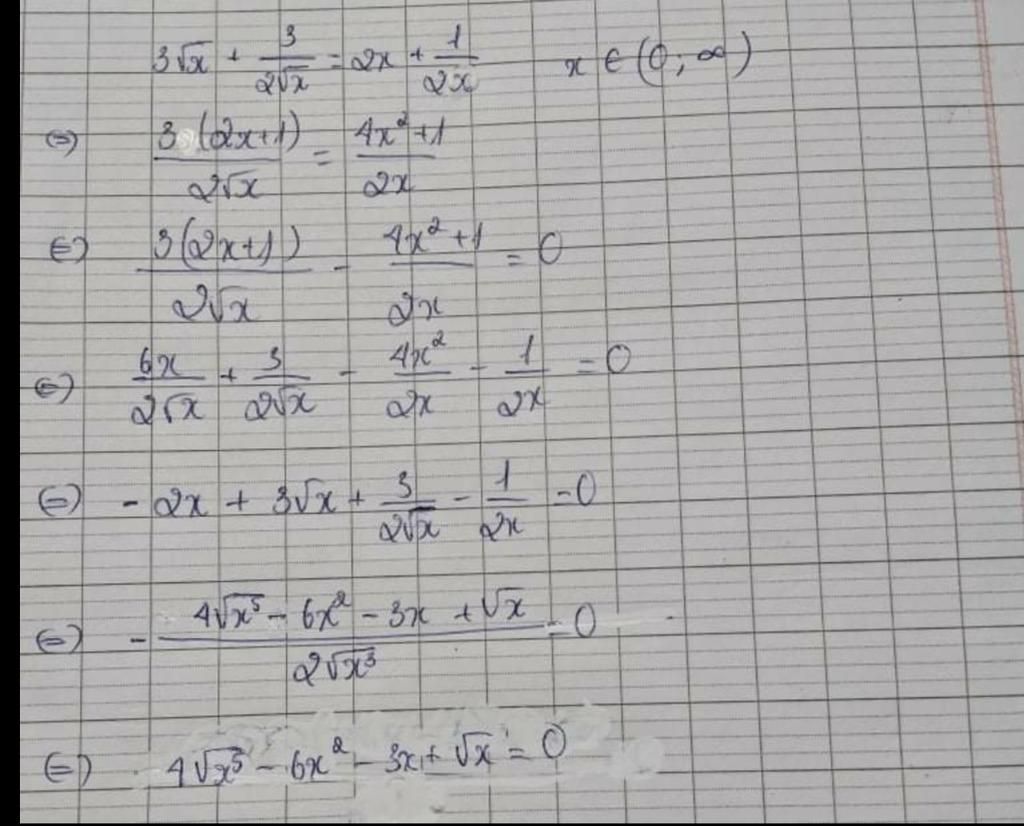 3√x + 3/(2√x) = 2x + 1/(2x)   x ∈ (0; ∞)
⇔ 3(2x+1)/(2√x) = (4x²+1)/(2x)
⇔ 3(2x+1)/(2√x) - (4x²+1)/(2x) = 0
⇔ 6x/(2√x) + 3/(2√x) - 4x²/(2x) - 1/(2x) = 0
⇔ - 2x + 3√x + 3/(2√x) - 1/(2x) = 0
⇔ - (4√x⁵ - 6x² - 3x + √x)/(2√x³) = 0
⇔ 4√x⁵ - 6x² - 3x + √x = 0